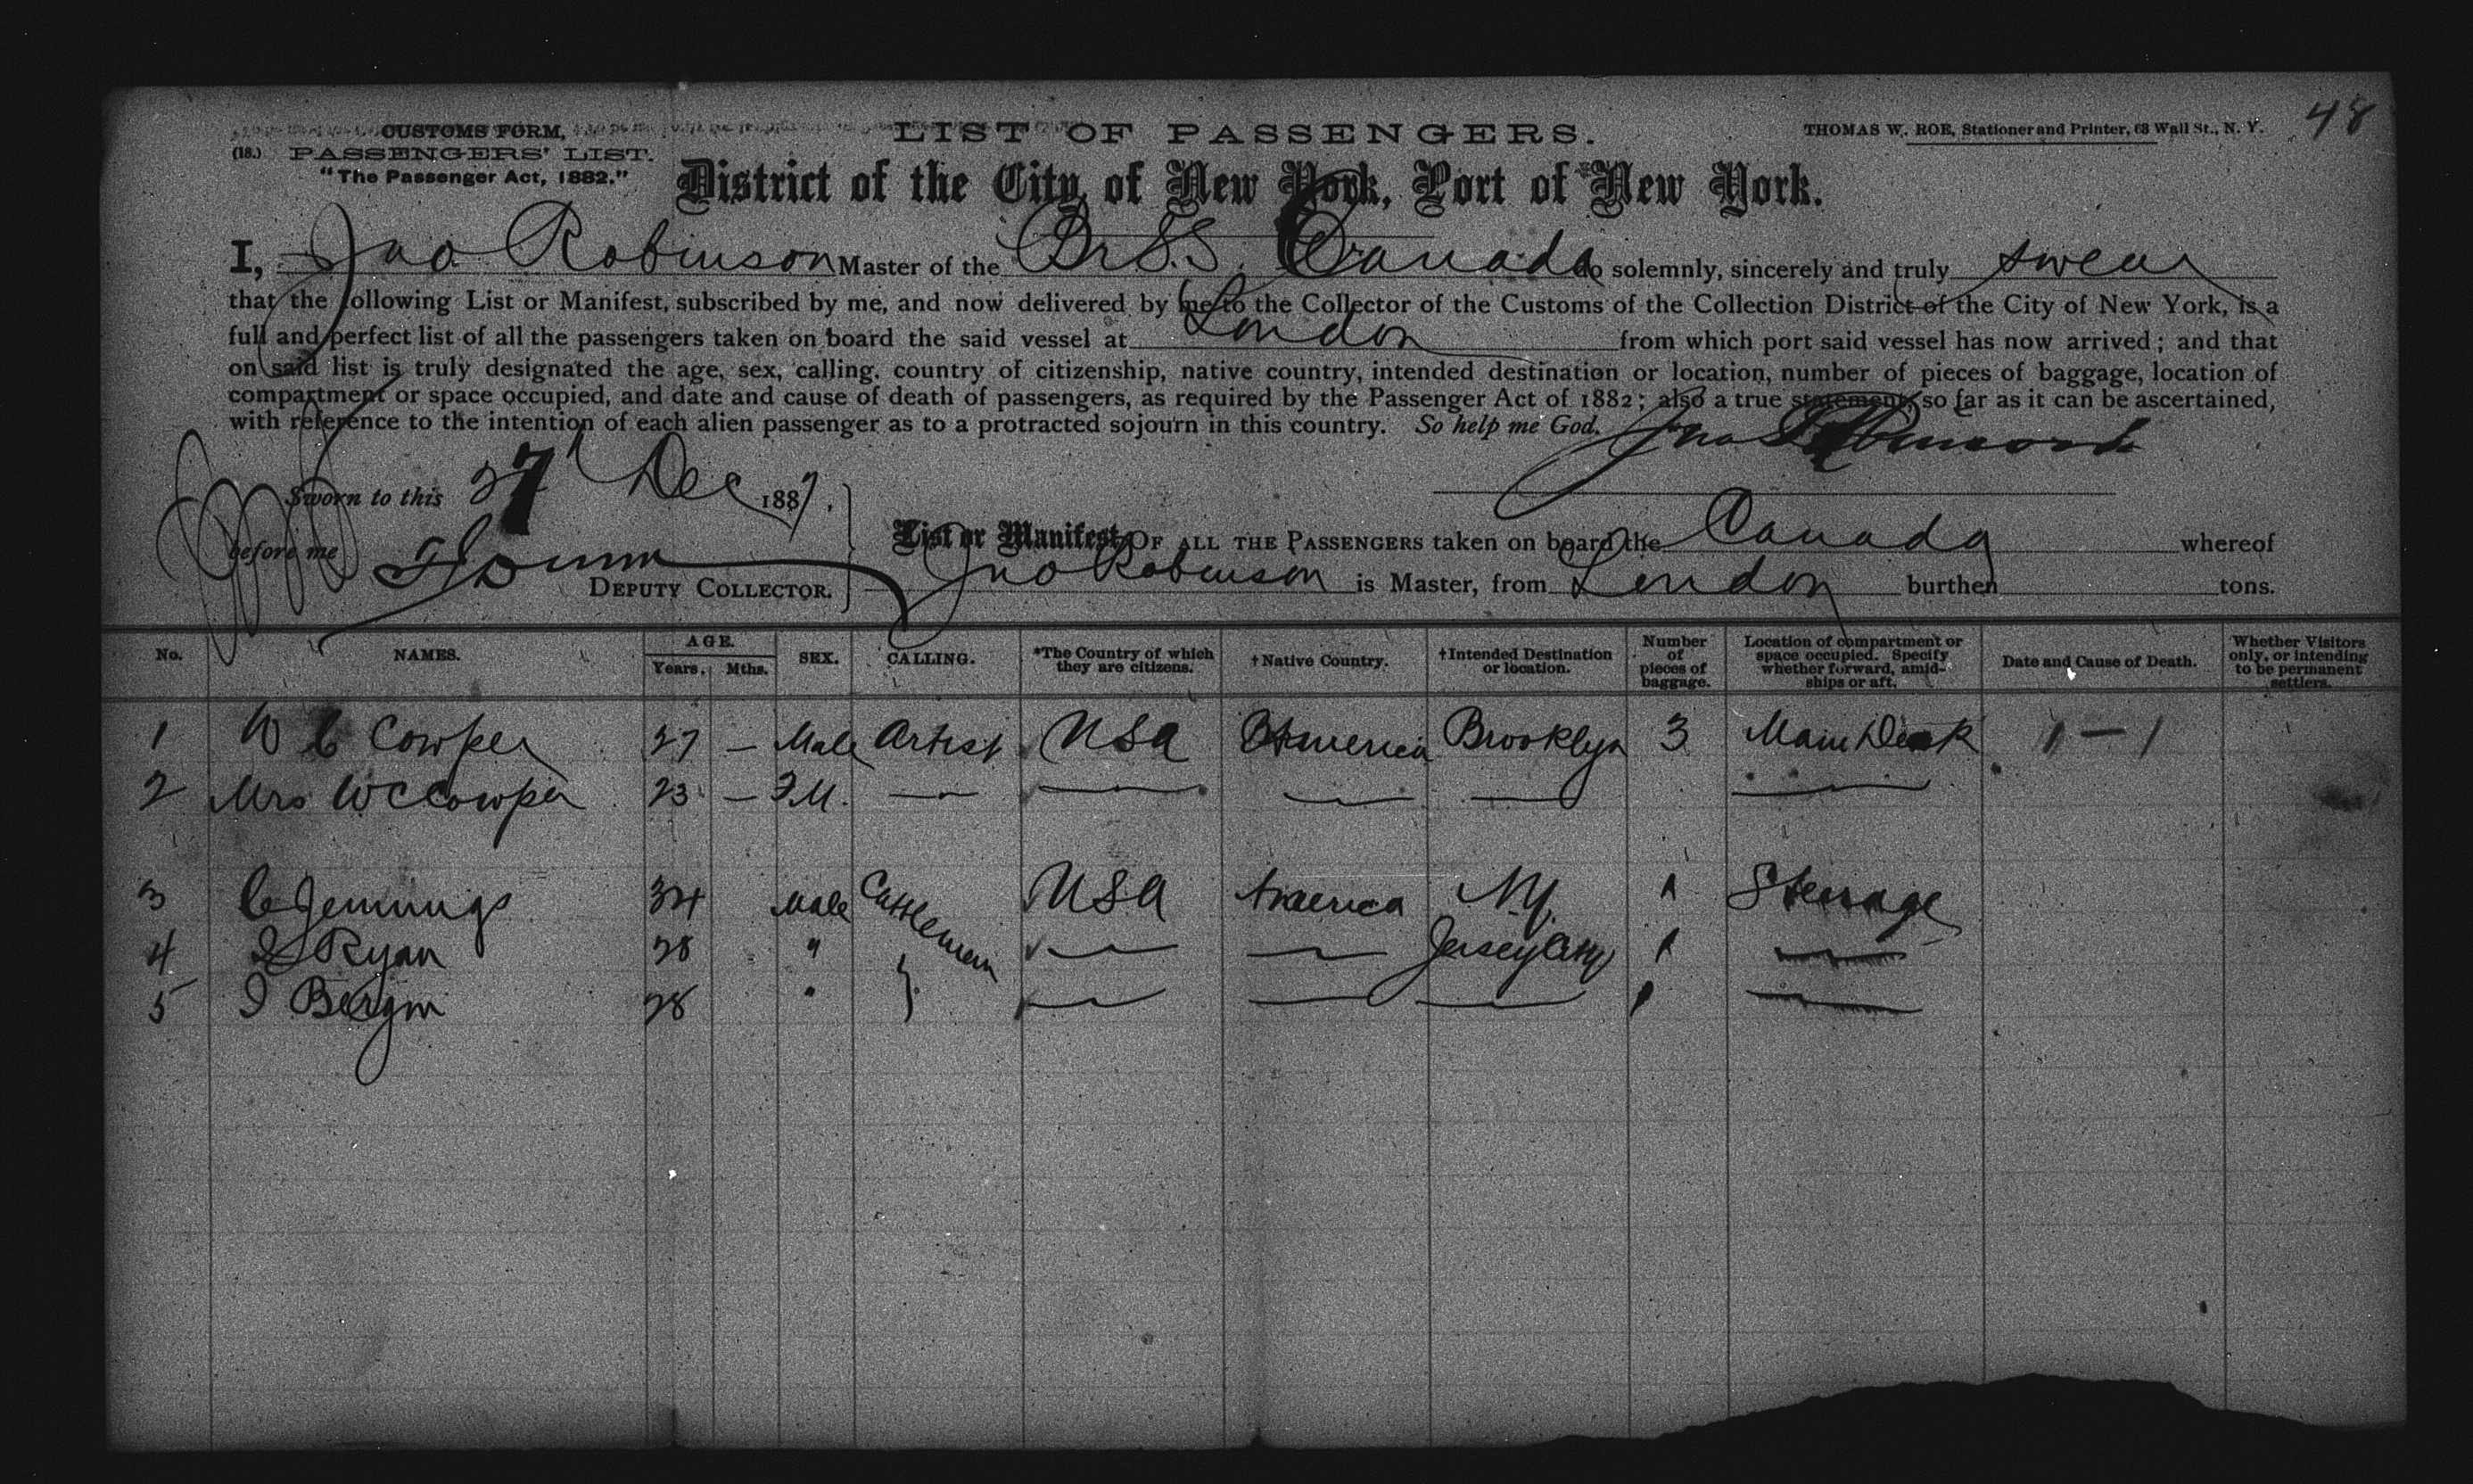 48
CUSTOMS FORM,
LIST OF PASSENGERS.
THOMAS W. ROE, Stationer and Printer, 68 Wall St., N. Y.
(18.) PASSENGERS' LIST.
"The Passenger Act, 1882."
District of the City of New York, Port of New York.
I, Jno Robinson Master of the Br S.S. Canada do solemnly, sincerely and truly swear
that the following List or Manifest, subscribed by me, and now delivered by me to the Collector of the Customs of the Collection District of the City of New York, is a
full and perfect list of all the passengers taken on board the said vessel at London from which port said vessel has now arrived; and that
on said list is truly designated the age, sex, calling, country of citizenship, native country, intended destination or location, number of pieces of baggage, location of
compartment or space occupied, and date and cause of death of passengers, as required by the Passenger Act of 1882; also a true statement, so far as it can be ascertained,
with reference to the intention of each alien passenger as to a protracted sojourn in this country. So help me God.
Jno Robinson
Sworn to this 27 Dec 1887.
before me
DEPUTY COLLECTOR.
List or Manifest OF ALL THE PASSENGERS taken on board the Canada whereof
Jno Robinson is Master, from London burthen tons.
No. NAMES. AGE. Years. Mths. SEX. CALLING. *The Country of which they are citizens. †Native Country. †Intended Destination or location. Number of pieces of baggage. Location of compartment or space occupied. Specify whether forward, amidships or aft. Date and Cause of Death. Whether Visitors only, or intending to be permanent settlers.
1 W C Cowper 27 — Male Artist USA America Brooklyn 3 Main Deck 1 — 1
2 Mrs W C Cowper 23 — F M. — — — — —
3 C Jennings 34 Male Cattlemen USA America N.Y. 1 Steerage
4 Ryan 28 " — — Jersey City 1 —
5 28 " — — — 1 —